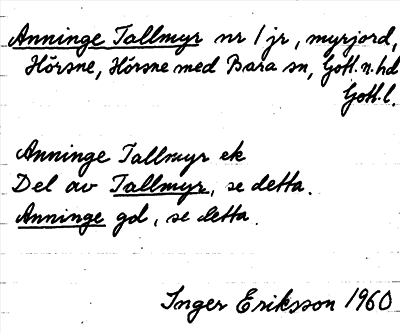 Anninge Tallmyr nr 1 jr, myrjord,
Hörsne, Hörsne med Bara sn, Gotl. n. hd
Gotl. l.
Anninge Tallmyr ek
Del av Tallmyr, se detta.
Anninge gd, se detta.
Inger Eriksson 1960